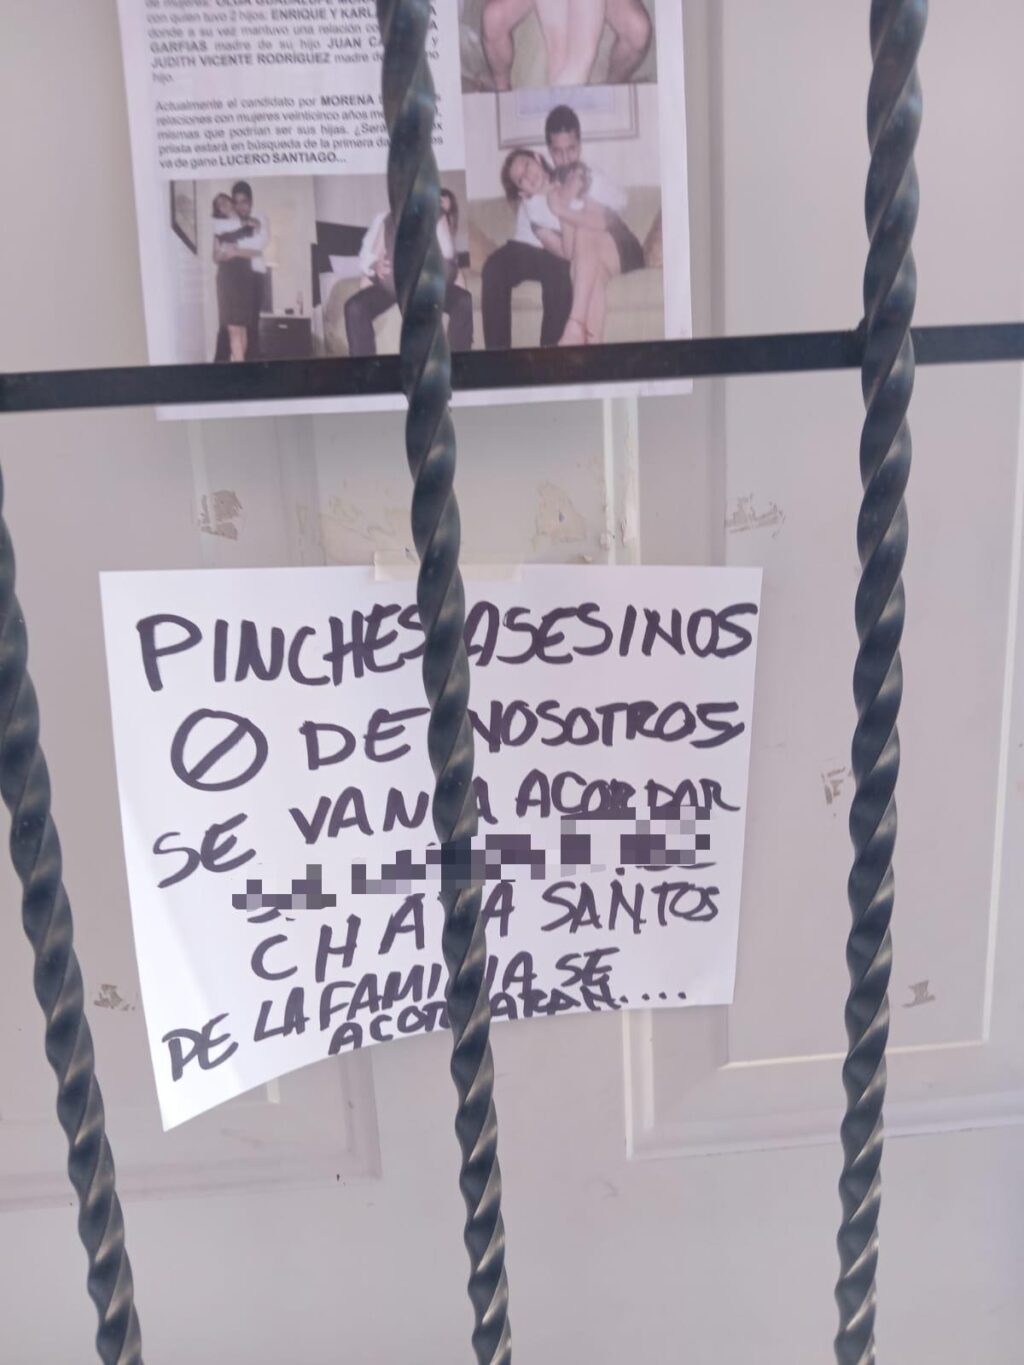 de mujeres. OLGA GUADALUPE
con quien tuvo 2 hijos: ENRIQUE Y
donde a su vez mantuvo una relación
GARFIAS madre de su hijo JUAN Y
JUDITH VICENTE RODRÍGUEZ madre
hijo.
Actualmente el candidato por MORENA
relaciones con mujeres veinticinco años
mismas que podrían ser sus hijas. ¿Será
priista estará en búsqueda de la primera
va de gane LUCERO SANTIAGO...
PINCHES ASESINOS
O DE NOSOTROS
SE VAN A ACORDAR
SANTOS
DE LA FAMILIA SE
ACORDARAN....